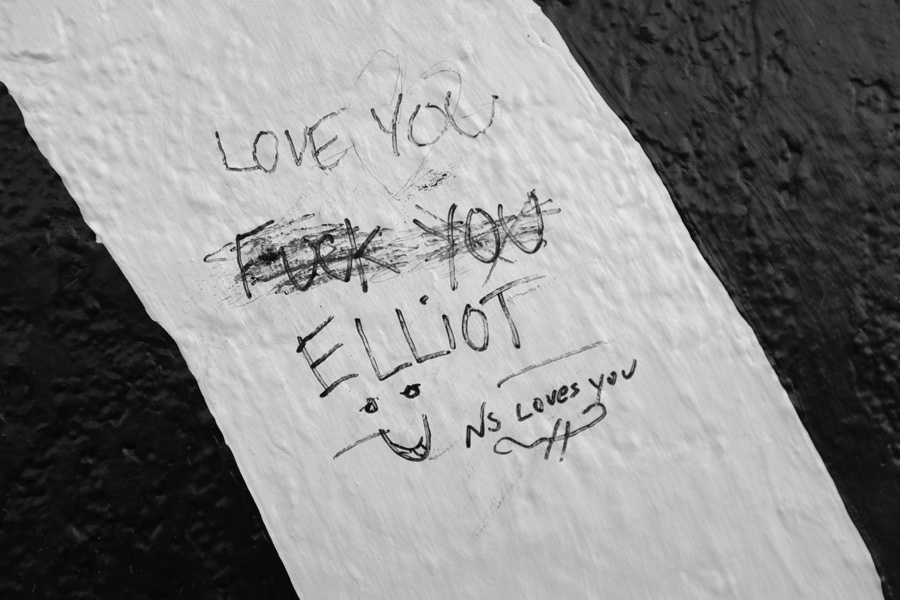 LOVE YOU
FUCK YOU
ELLiOT
NS LOVES YOU